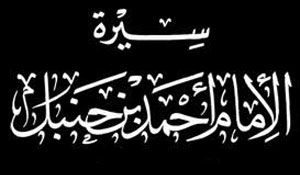 سِيْرَة
الإِمَامِ أَحْمَدَ بْنِ حَنْبَل